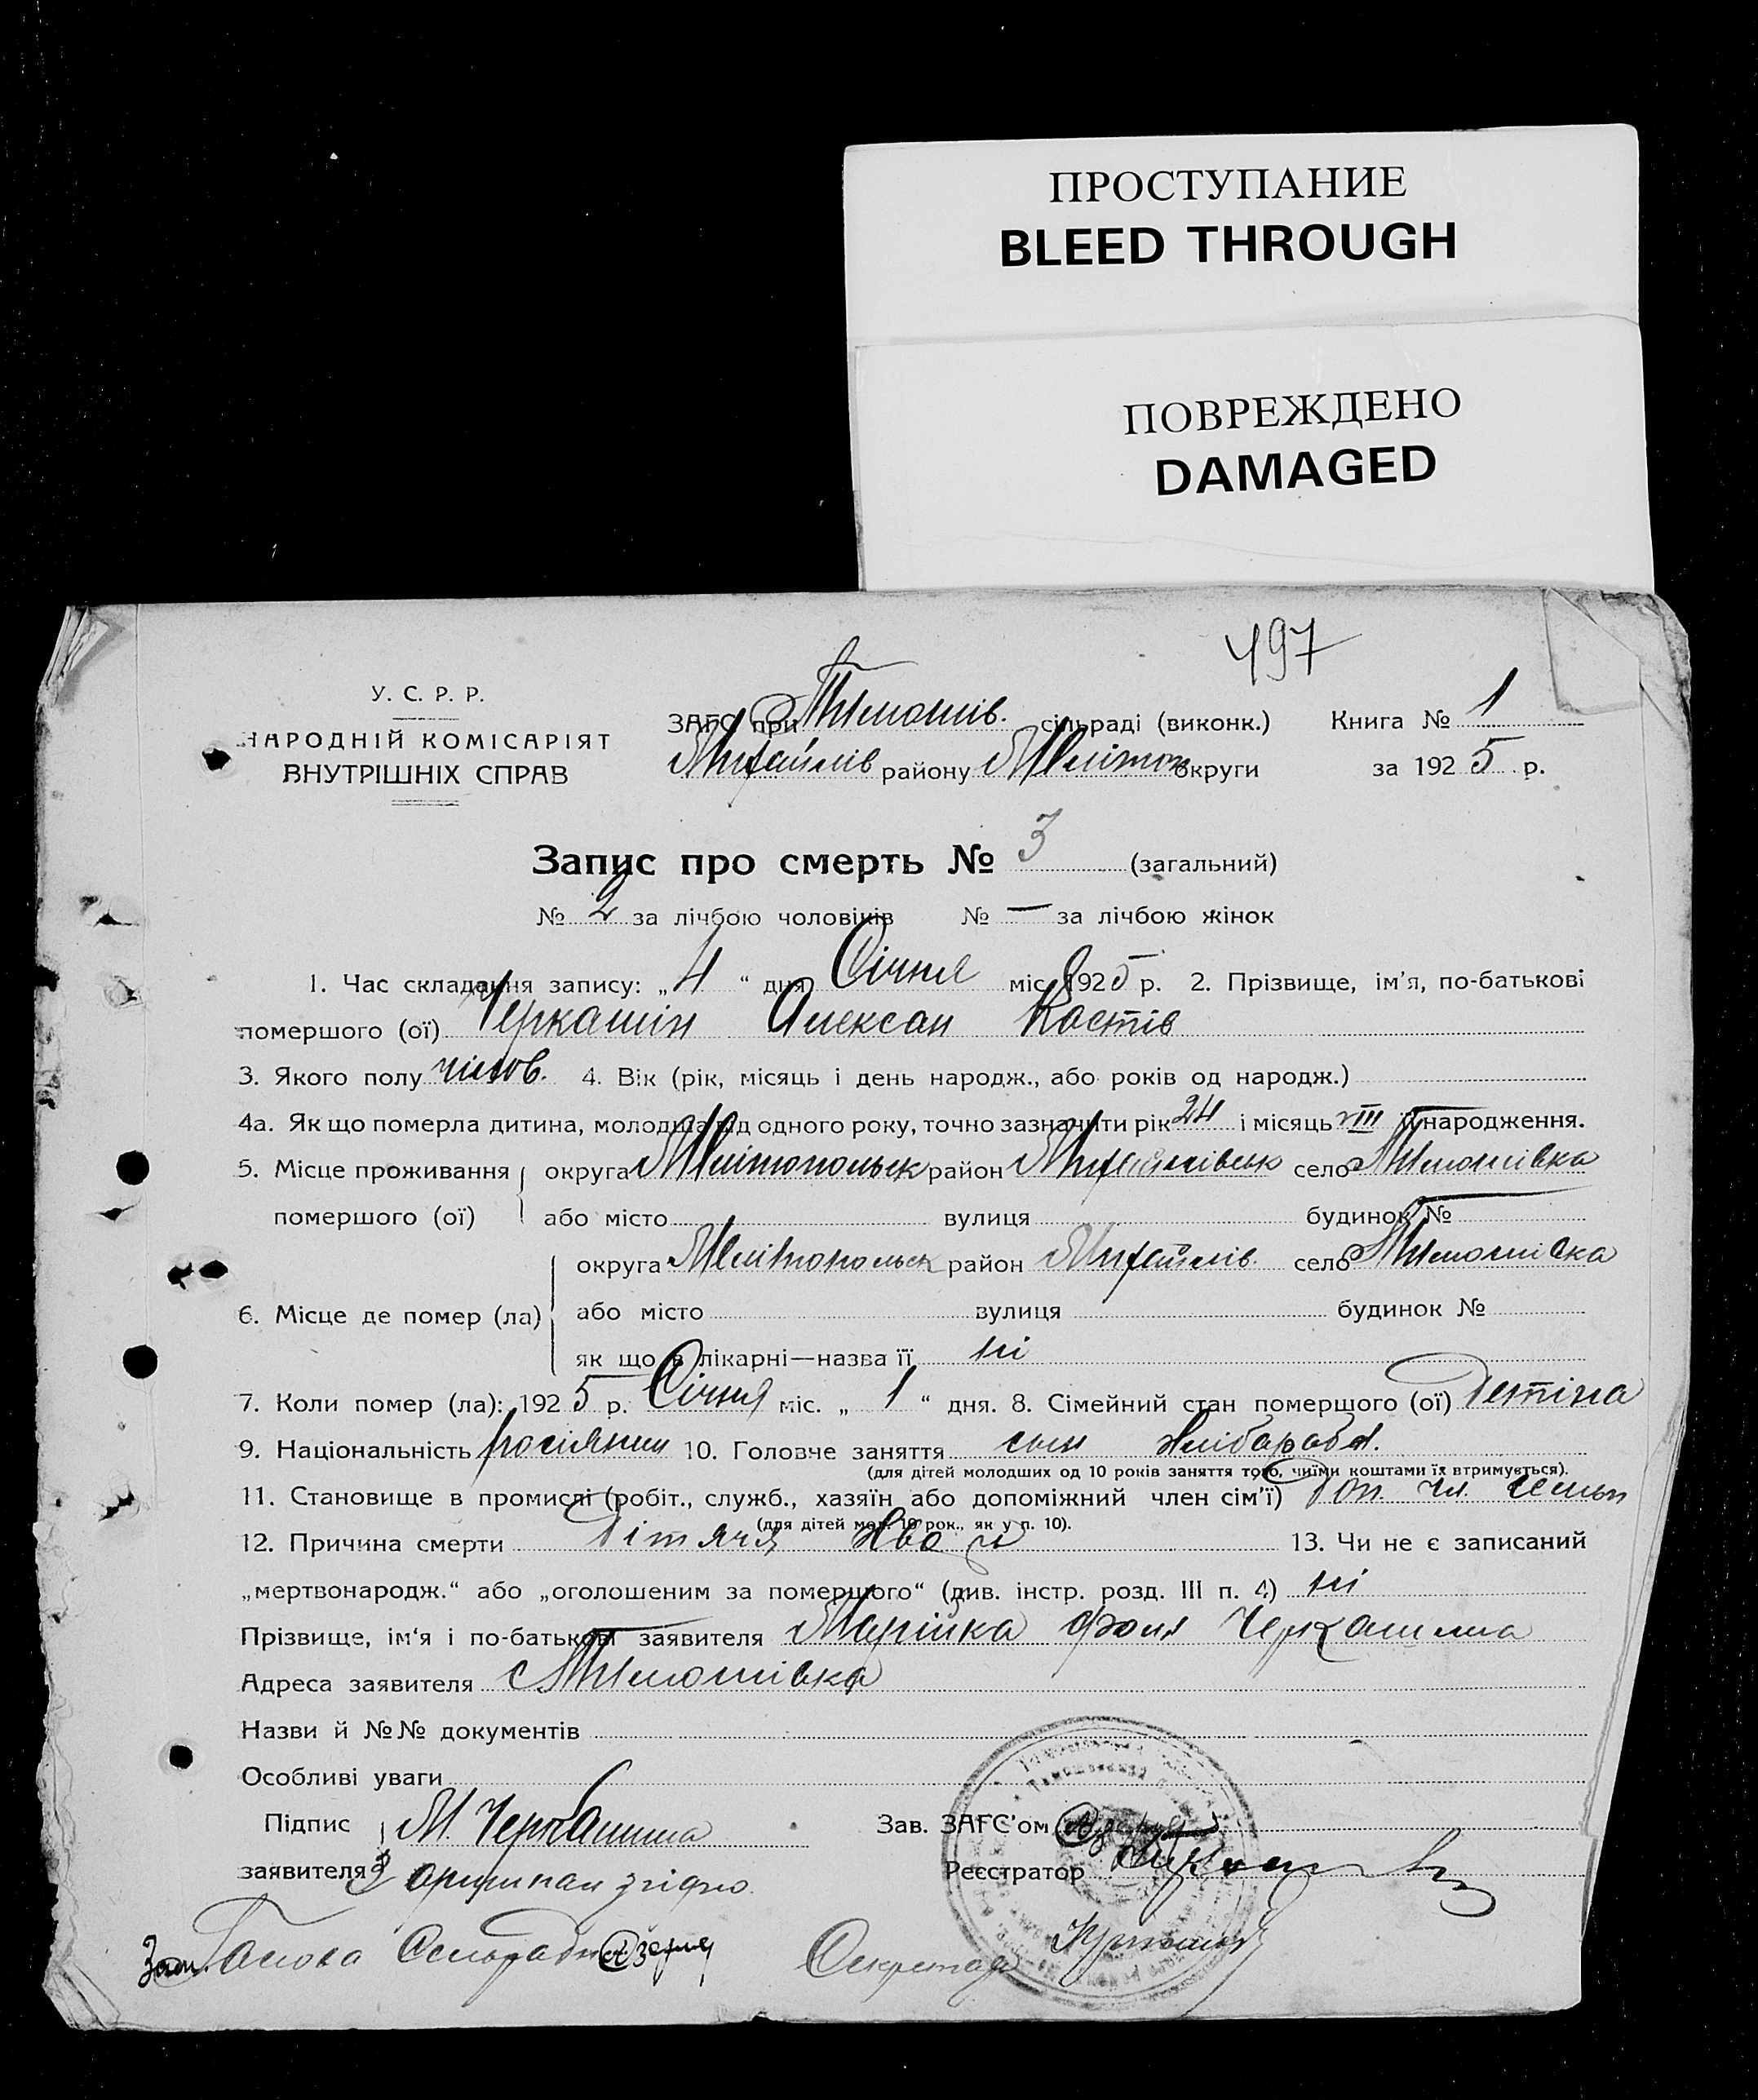 ПРОСТУПАНИЕ
BLEED THROUGH
ПОВРЕЖДЕНО
DAMAGED
497
У. С. Р. Р.
НАРОДНІЙ КОМІСАРІЯТ
ВНУТРІШНІХ СПРАВ
ЗАГС при Тимошів. сільраді (виконк.) Книга № 1
Михайлів району Меліток округи за 1925 р.
Запис про смерть № 3 (загальний)
№ 2 за лічбою чоловіків № — за лічбою жінок
1. Час складання запису: „4“ дня Січня міс. 1925 р. 2. Прізвище, ім'я, по-батькові
помершого (ої) Черкашін Алексан Костів
3. Якого полу чілов. 4. Вік (рік, місяць і день народж., або років од народж.)
4а. Як що померла дитина, молодша від одного року, точно зазначити рік 24 і місяць VIII її народження.
5. Місце проживання округа Мелітопольськ район Михайлівськ село Тимошівка
помершого (ої) або місто вулиця будинок №
округа Мелітопольск район Михайлів. село Тимошівка
6. Місце де помер (ла) або місто вулиця будинок №
як що в лікарні—назва її ні
7. Коли помер (ла): 1925 р. Січня міс. „1“ дня. 8. Сімейний стан помершого (ої) Детіна
9. Національність росіянин 10. Головче заняття сын хлібороба.
(для дітей молодших од 10 років заняття того, чиїми коштами їх втримується).
11. Становище в промислі (робіт., служб., хазяїн або допоміжний член сім'ї) Доп. чл. семьи
(для дітей мол. 10 рок., як у п. 10).
12. Причина смерти Дітячя 13. Чи не є записаний
„мертвонародж.“ або „оголошеним за помершого“ (див. інстр. розд. III п. 4) ні
Прізвище, ім'я і по-батькові заявителя Марійка Черкашина
Адреса заявителя с Тимошівка
Назви й №№ документів
Особливі уваги
Підпис М. Черкашина Зав. ЗАГС'ом
заявителя Реєстратор
З оригіналом згідно.
Зам. Голова Сельради Секретар